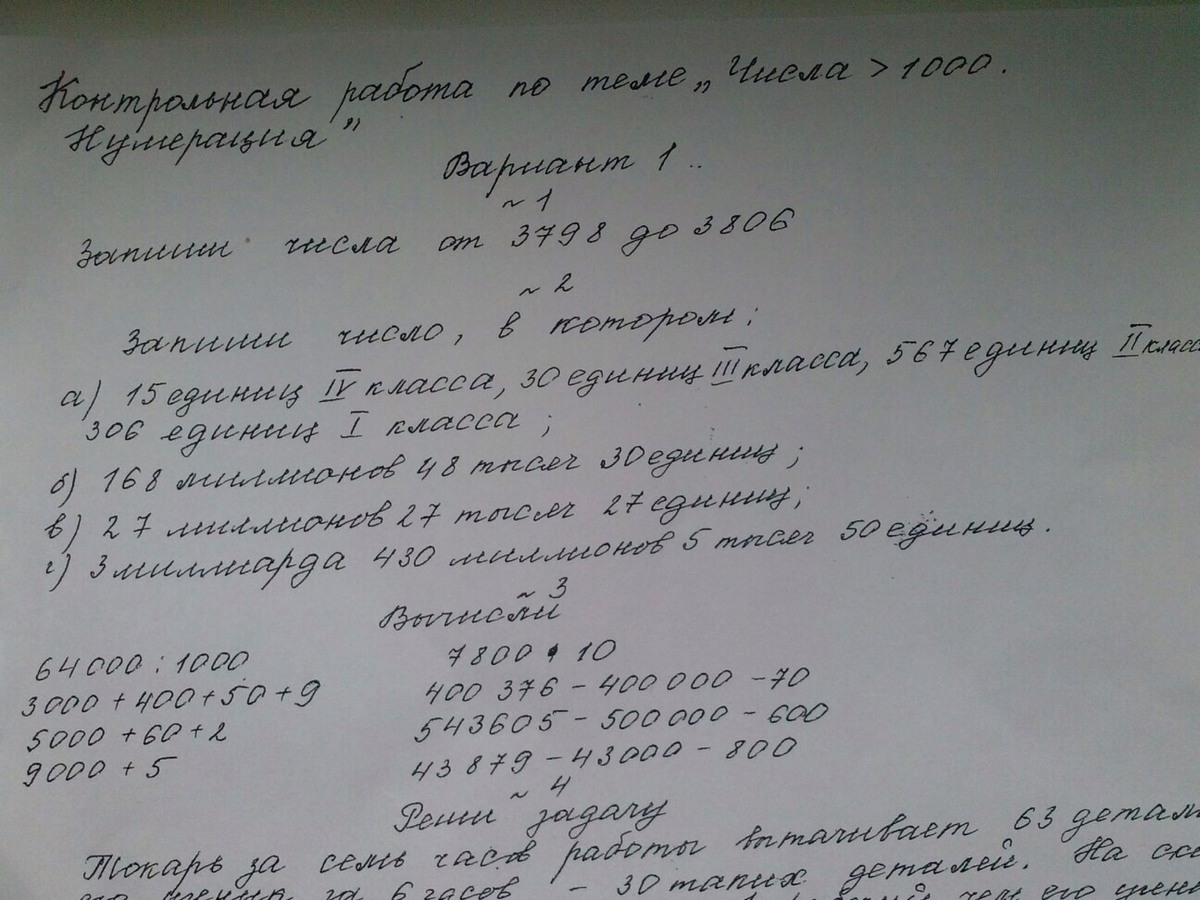 Контрольная работа по теме „Числа > 1000.
Нумерация”
Вариант 1..
~ 1
Запиши числа от 3798 до 3806
~ 2
Запиши число, в котором:
а) 15 единиц IV класса, 30 единиц III класса, 567 единиц II класс
306 единиц I класса ;
б) 168 миллионов 48 тысяч 30 единиц ;
в) 27 миллионов 27 тысяч 27 единиц;
г) 3 миллиарда 430 миллионов 5 тысяч 50 единиц.
~ 3
Вычисли
64000 : 1000 7800 • 10
3000 + 400 + 50 + 9 400 376 - 400 000 - 70
5000 + 60 + 2 543605 - 500000 - 600
9000 + 5 43879 - 43000 - 800
~ 4
Реши задачу
Токарь за семь часов работы вытачивает 63 детал
за 6 часов - 30 таких деталей. На
чем его